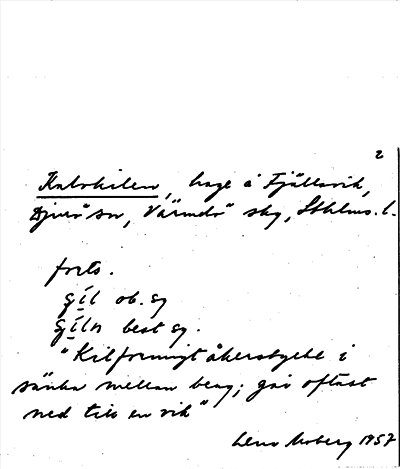 2
Kalvkilen, hage å Fjällsvik,
Djurö sn, Värmdö skg, Sthlms. l.
forts.
gíl ob. sg
gíln best sg.
"Kilformigt åkerstycke i
sänka mellan berg; går oftast
ned till en vik"
Lena Moberg 1957